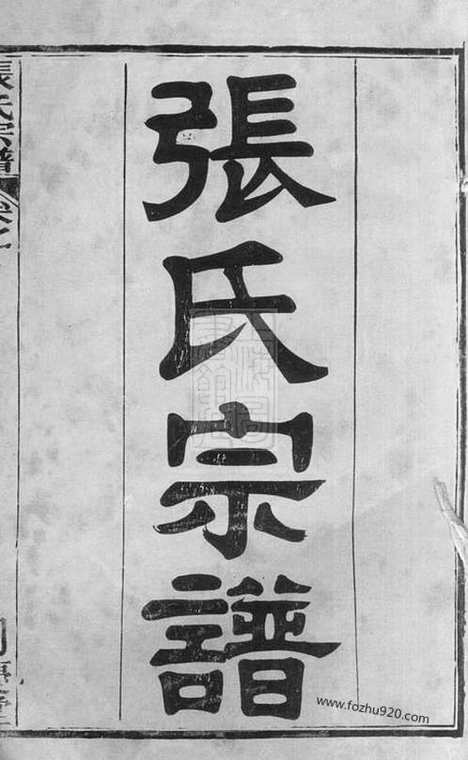 張氏宗譜
張氏宗譜
www.fozhu920.com